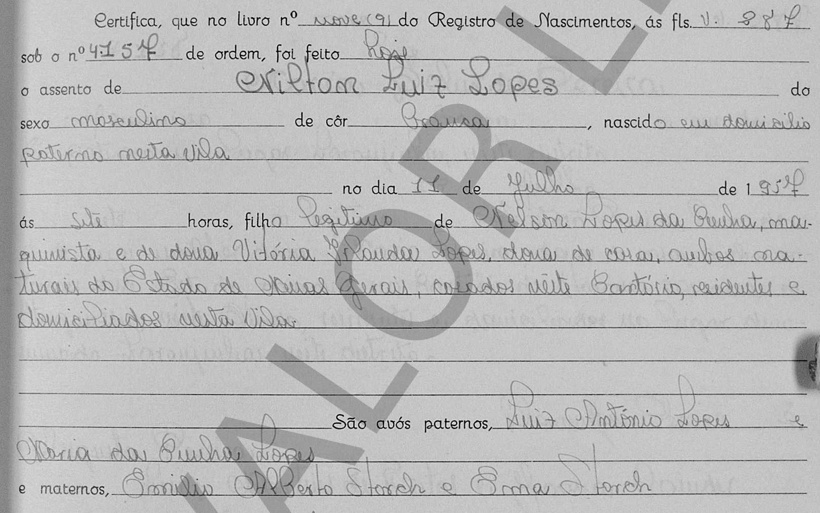 Certifica, que no livro nº nove (9) do Registro de Nascimentos, ás fls. V. 887
sob o nº 4157 de ordem, foi feito hoje
o assento de Nilton Luiz Lopes do
sexo masculino de côr branca, nascido em domicilio
paterno nesta Vila
no dia 11 de Julho de 1957
ás sete horas, filho legitimo de Nelson Lopes da Cunha, ma-
quinista e de dona Vitória Lopes, dona de casa, ambos na-
turais do Estado de Minas Gerais, casados neste Cartório, residentes e
domiciliados nesta Vila.
São avós paternos, Luiz Antônio Lopes e
Maria da Cunha Lopes
e maternos, Emilio Alberto Storch e Erma Storch
VALOR